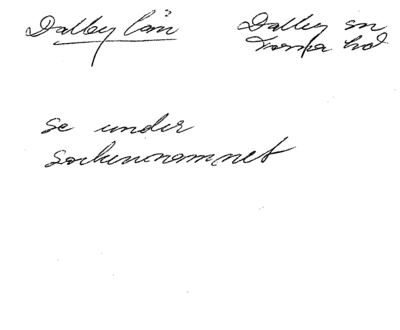 Dalby län
Dalby sn
Torna hd
se under
sockennamnet